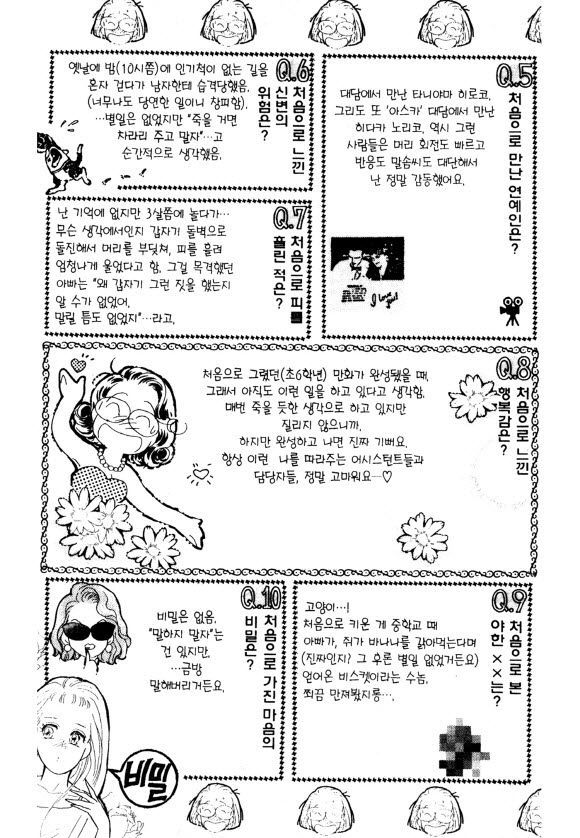 Q.5
처음으로 만난 연예인은?
대담에서 만난 타니야마 히로코,
그리고 또 "아스카" 대담에서 만난
히다카 노리코, 역시 그런
사람들은 머리 회전도 빠르고
반응도 말솜씨도 대단해서
난 정말 감동했어요.
I love you!
Q.6
처음으로 느낀
신변의
위험은?
옛날에 밤(10시쯤)에 인기척이 없는 길을
혼자 걷다가 남자한테 습격당했음.
(너무나도 당연한 일이니 창피함).
…별일은 없었지만 "죽을 거면
차라리 주고 말자"…고
순간적으로 생각했음.
Q.7
처음으로 피를
흘린 적은?
난 기억에 없지만 3살쯤에 놀다가…
무슨 생각에서인지 갑자기 돌벽으로
돌진해서 머리를 부딪쳐, 피를 흘려
엄청나게 울었다고 함. 그걸 목격했던
아빠는 "왜 갑자기 그런 짓을 했는지
알 수가 없었어.
말릴 틈도 없었지"…라고.
Q.8
처음으로 느낀
행복감은?
처음으로 그렸던(초6학년) 만화가 완성됐을 때.
그래서 아직도 이런 일을 하고 있다고 생각함.
매번 죽을 듯한 생각으로 하고 있지만
질리지 않으니까.
하지만 완성하고 나면 진짜 기뻐요.
항상 이런 나를 따라주는 어시스턴트들과
담당자들, 정말 고마워요…♡
Q.9
처음으로 본
야한 ××는?
고양이…!
처음으로 키운 게 중학교 때
아빠가, 쥐가 바나나를 갉아먹는다며
(진짜인지? 그 후론 별일 없었거든요)
얻어온 비스켓이라는 수놈.
쬐끔 만져봤지롱….
Q.10
처음으로 가진 마음의
비밀은?
비밀은 없음.
"말하지 말자"는
건 있지만,
…금방
말해버리거든요.
비밀